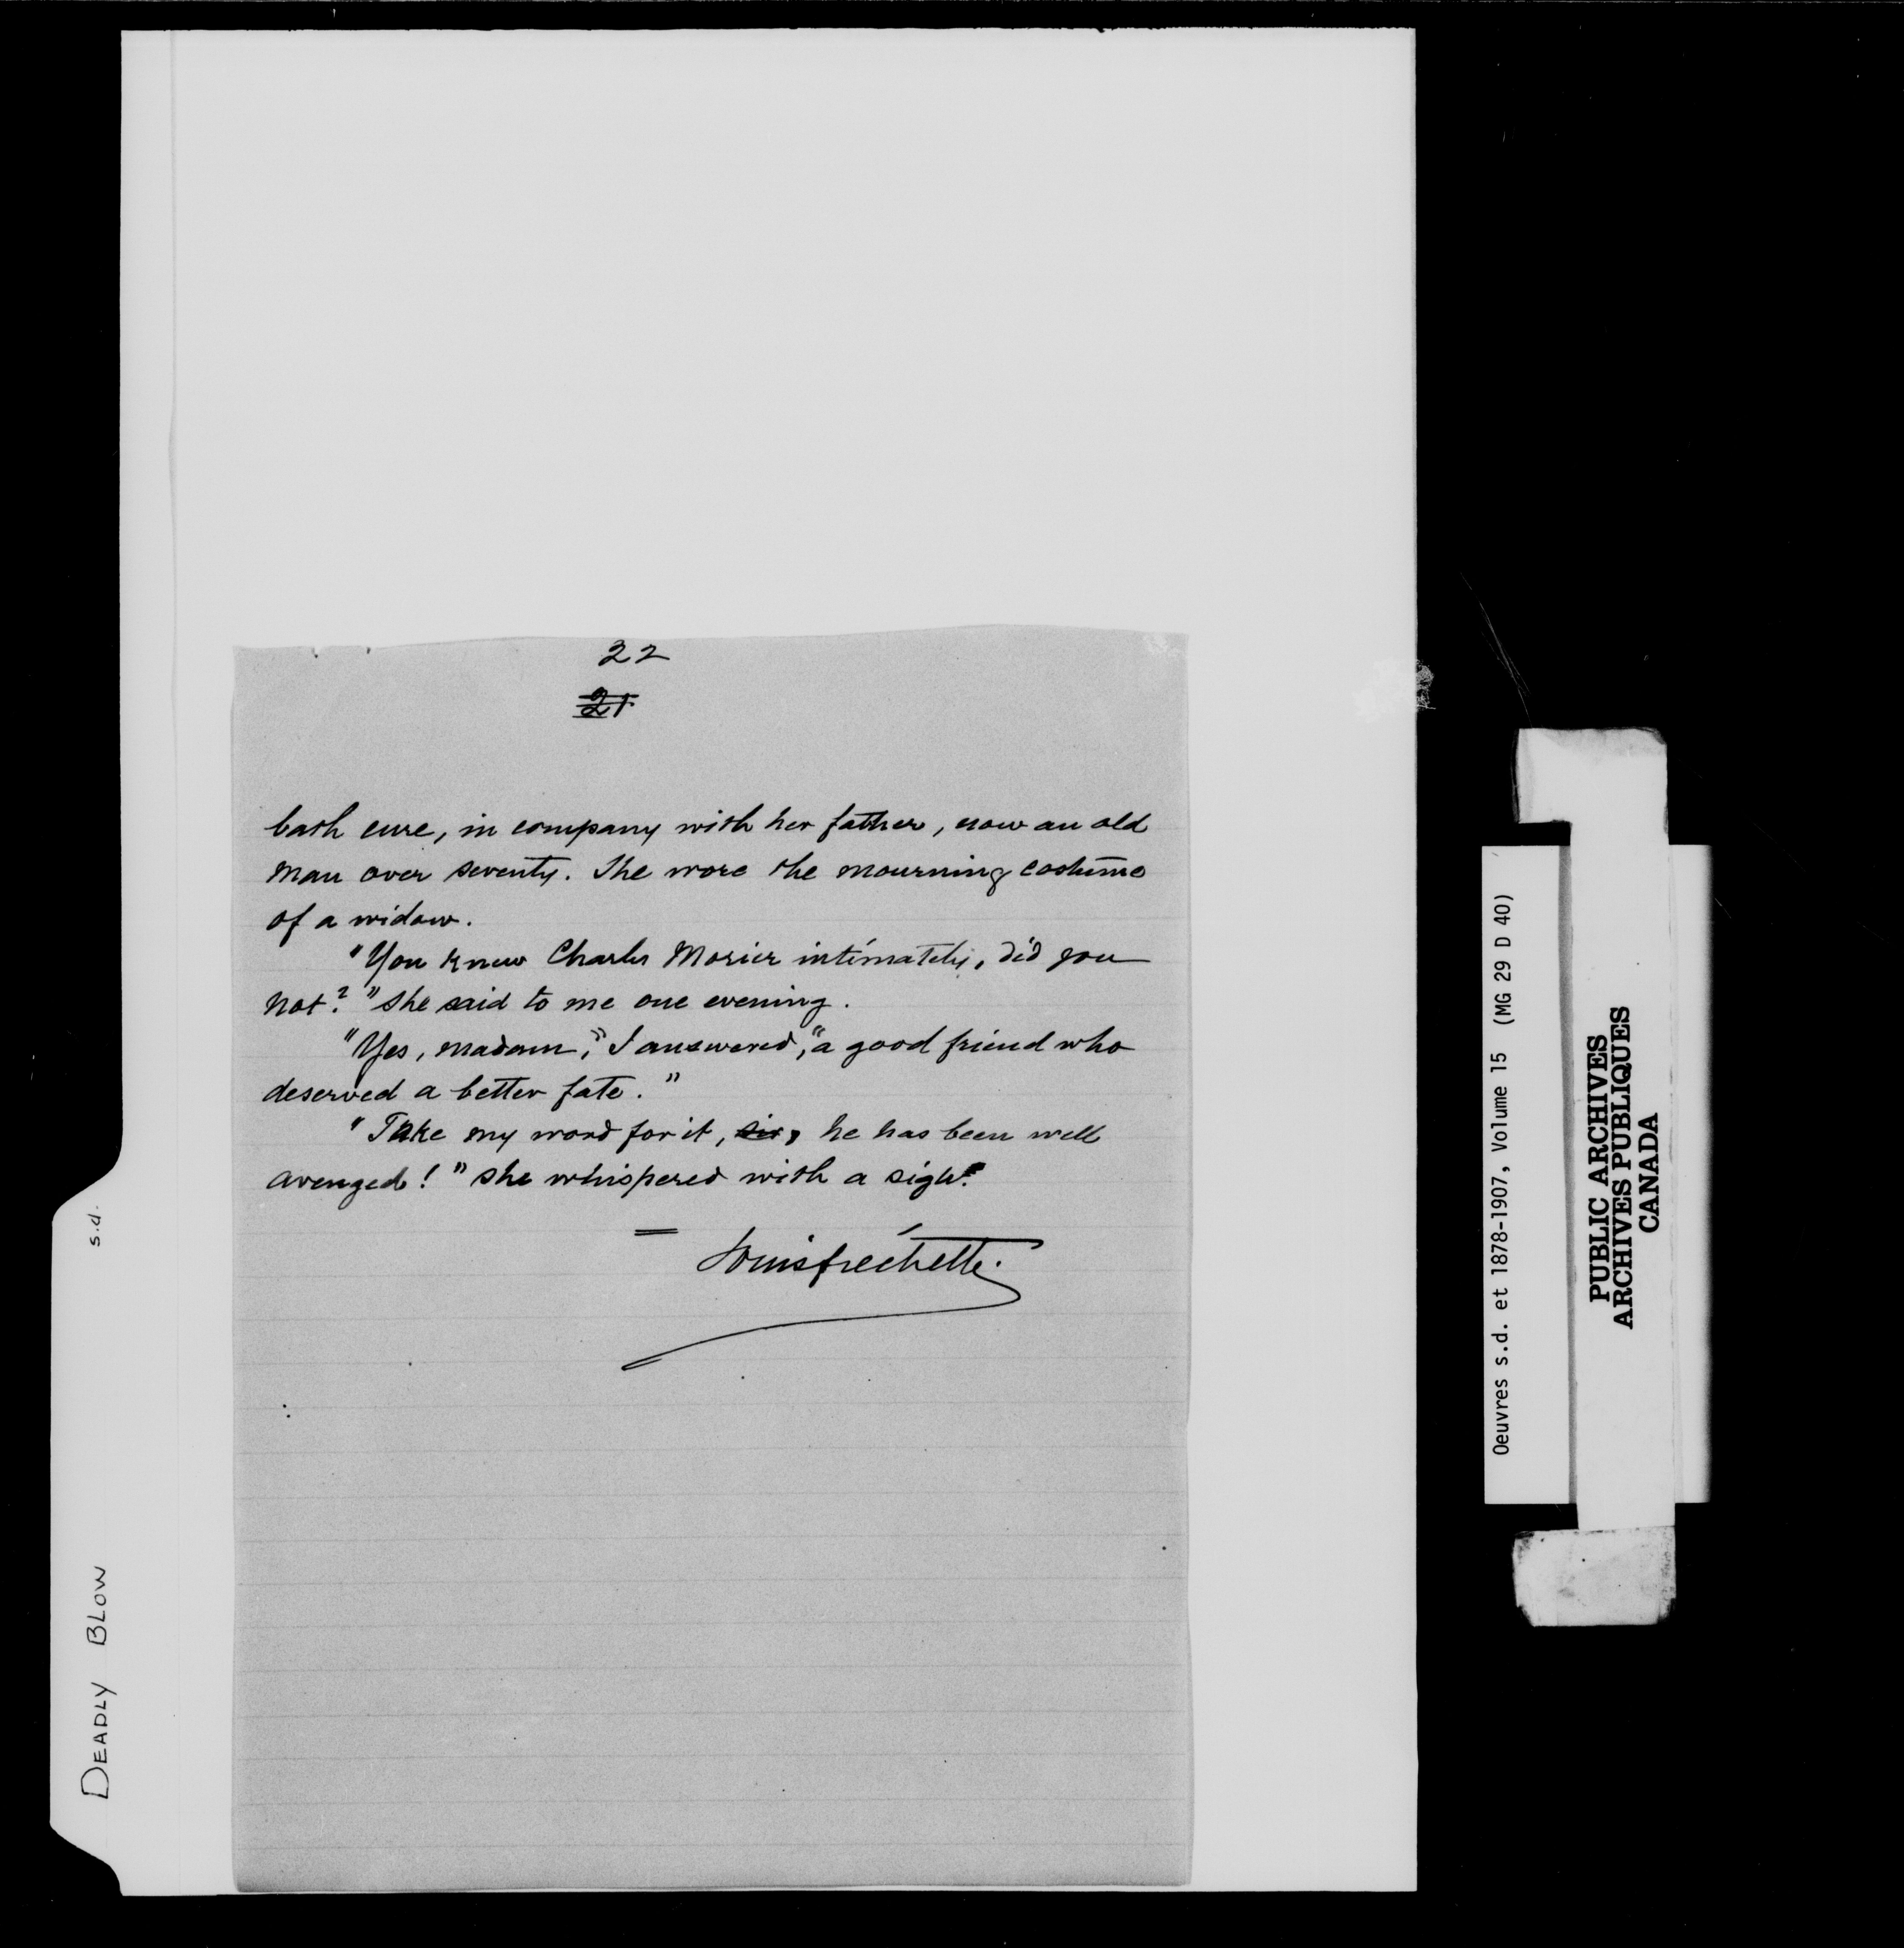 22
21
bath cure, in company with her father, now an old
man over seventy. She wore the mourning costume
of a widow.
"You knew Charles Morier intimately, did you
not?" she said to me one evening.
"Yes, madam," I answered, "a good friend who
deserved a better fate."
"Take my word for it, sir, he has been well
avenged!" she whispered with a sigh.
Louis Fréchette.
DEADLY BLOW
s.d.
Oeuvres s.d. et 1878-1907, Volume 15 (MG 29 D 40)
PUBLIC ARCHIVES
ARCHIVES PUBLIQUES
CANADA